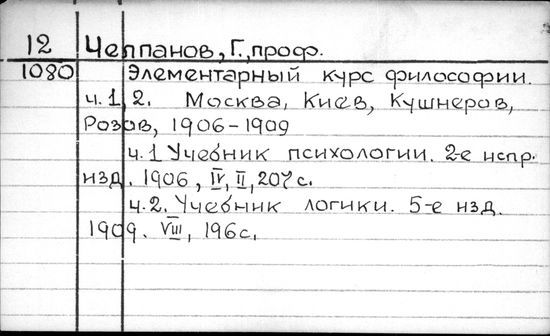 12 Челпанов, Г., проф.
1080 Элементарный курс философии.
ч. 1, 2. Москва, Киев, Кушнеров,
Розов, 1906-1909
ч. 1 Учебник психологии. 2-е испр.
изд. 1906, IV, II, 207 с.
ч. 2. Учебник логики. 5-е изд.
1909. VIII, 196 с.